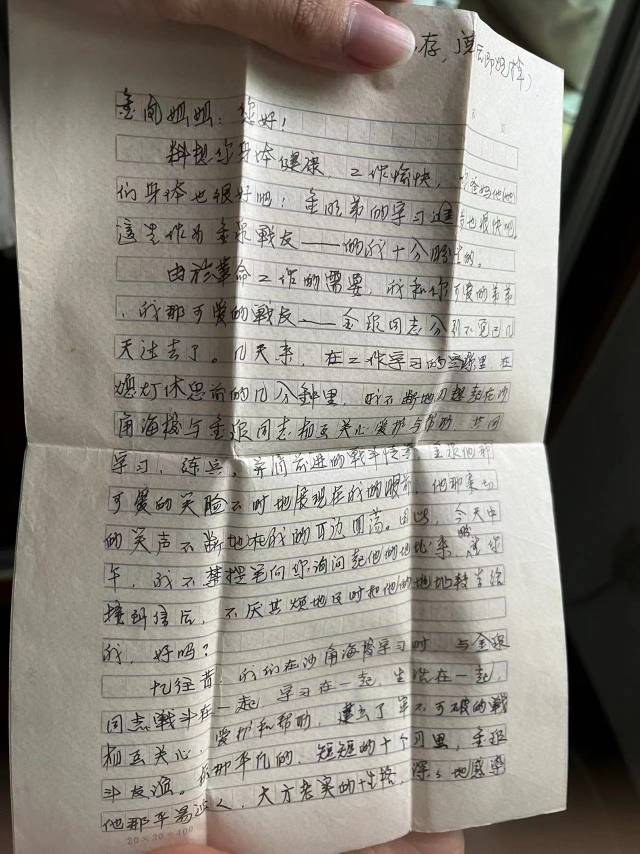 存,
姐姐:您好!
料想您身体健康,工作愉快,爸妈他
们身体也很好吗!金明弟的学习进也很快吧,
战友——的我十分
由於革命工作的需要,我和你可爱的弟弟
,我那可爱的戰友——金银同志分别不觉已几
天过去了。几天来,在工作学习的里在
熄灯休息前的几分鐘里,我不断地想起在沙
角海校与金银同志相互关心爱护与帮助,共同
学习,练兵,并肩前进的戰斗情金银他那
可爱的笑脸不时地展现在我的眼前,他那亲切
的笑声不断地在我的耳边回荡。因此,今天中
午,我不禁提笔向你询问起他的地址来,请你
接到信后,不厌其烦地及时把他的地址转告给
我,好吗?
忆往昔,我们在沙角海校学习时,与金银
同志戰斗在一起,学习在一起,生活在一起,
相互关心,爱护和帮助,建立了牢不可破的戰
斗友谊。在那平凡的,短短的十个月里,金银
他那平易近人,大方老实的性格,深深地感染
20×20=400